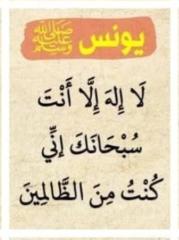 يونس ﷺ
لَا إِلَهَ إِلَّا أَنْتَ
سُبْحَانَكَ إِنِّي
كُنْتُ مِنَ الظَّالِمِينَ